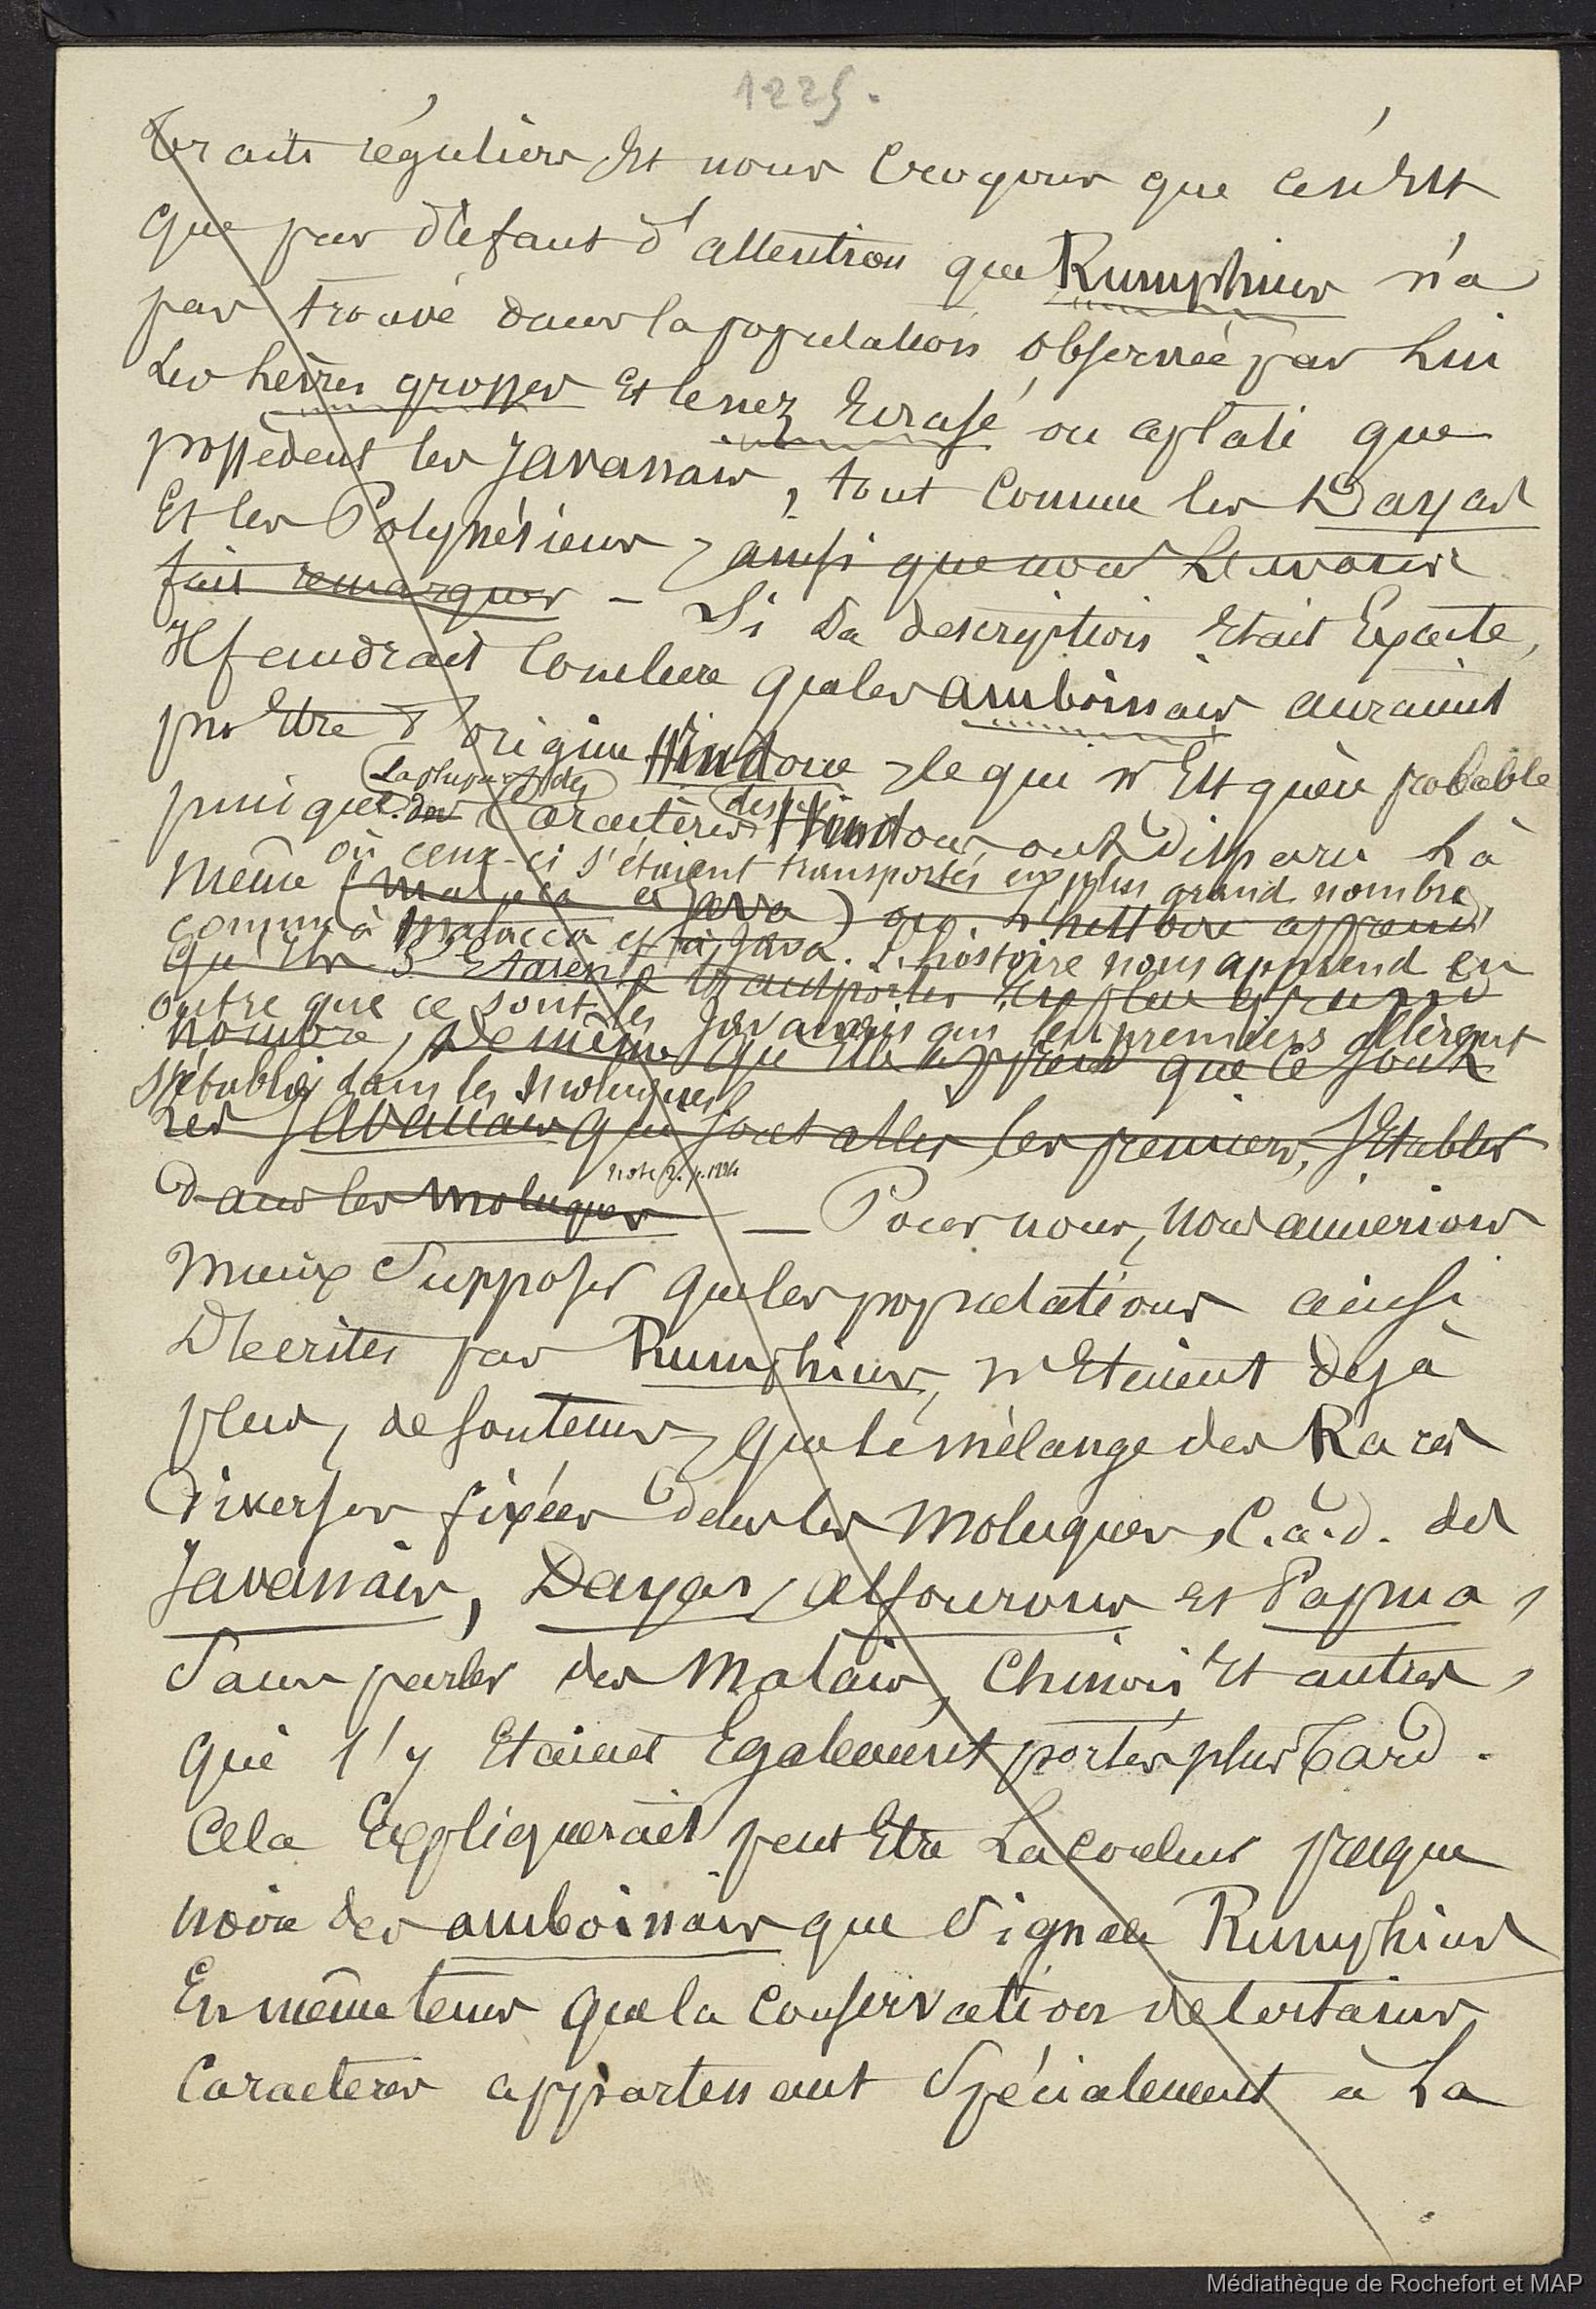 1225.
traits réguliers et nous croyons que ce n'est
que par défaut d'attention que Rumphius n'a
pas trouvé dans la population observée par lui
les lèvres grosses et le nez écrasé ou aplati que
possèdent les Javanais, tout comme les Dayas
et les Polynésiens, ainsi que nous l'avons
fait remarquer - Si sa description était exacte,
il faudrait conclure que les amboinais auraient
pu être d'origine Hindoue, ce qui n'est guère probable
la plupart des
puisque des caractères des Hindous ont disparu là
où ceux-ci s'étaient transportés en plus grand nombre,
même (Malacca et Java) où l'histoire apprend
comme à Malacca et à Java. L'histoire nous apprend en
qu'ils s'étaient transportés en plus grand
outre que ce sont les Javanais qui les premiers allèrent
nombre, de même qu'elle apprend que ce sont
s'établir dans les Moluques
les Javanais qui sont allés les premiers, s'établir
note 2. p. 1224
dans les Moluques — Pour nous, nous aimerions
mieux supposer que les populations ainsi
décrites par Rumphius, n'étaient déjà
plus, de son temps, que le mélange des Races
diverses fixées dans les Moluques, c.à.d. des
Javanais, Dayas, Alfourous et Papua,
sans parler des Malais, Chinois et autres,
qui s'y étaient également portés plus tard.
Cela expliquerait peut être la couleur presque
noire des amboinais que signale Rumphius
en même tems que la conservation de certains
caractères appartenant spécialement à la
Médiathèque de Rochefort et MAP